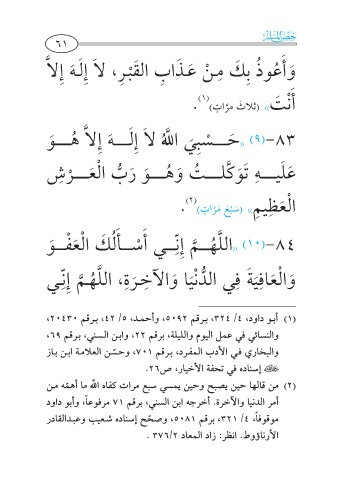 حصن المسلم
٦١
وَأَعُوذُ بِكَ مِنْ عَذَابِ القَبْرِ، لاَ إِلَهَ إِلاَّ
أَنْتَ» (ثلاثَ مرَّاتٍ)(١).
٨٣-(٩) «حَسْبِيَ اللَّهُ لاَ إِلَهَ إِلاَّ هُوَ
عَلَيهِ تَوَكَّلتُ وَهُوَ رَبُّ الْعَرْشِ
الْعَظِيمِ» (سَبْعَ مَرّاتٍ)(٢).
٨٤-(١٠) «اللَّهُمَّ إِنِّي أَسْأَلُكَ الْعَفْوَ
وَالْعَافِيَةَ فِي الدُّنْيَا وَالآخِرَةِ، اللَّهُمَّ إِنِّي
(١) أبو داود، ٤/ ٣٢٤، برقم ٥٠٩٢، وأحمد، ٥/ ٤٢، برقم ٢٠٤٣٠،
والنسائي في عمل اليوم والليلة، برقم ٢٢، وابن السني، برقم ٦٩،
والبخاري في الأدب المفرد، برقم ٧٠١، وحسّن العلامة ابن باز
إسناده في تحفة الأخيار، ص٢٦.
(٢) من قالها حين يصبح وحين يمسي سبع مرات كفاه الله ما أهمّه من
أمر الدنيا والآخرة. أخرجه ابن السني، برقم ٧١ مرفوعاً، وأبو داود
موقوفاً، ٤/ ٣٢١، برقم ٥٠٨١، وصحّح إسناده شعيب وعبدالقادر
الأرناؤوط. انظر: زاد المعاد ٢/ ٣٧٦.